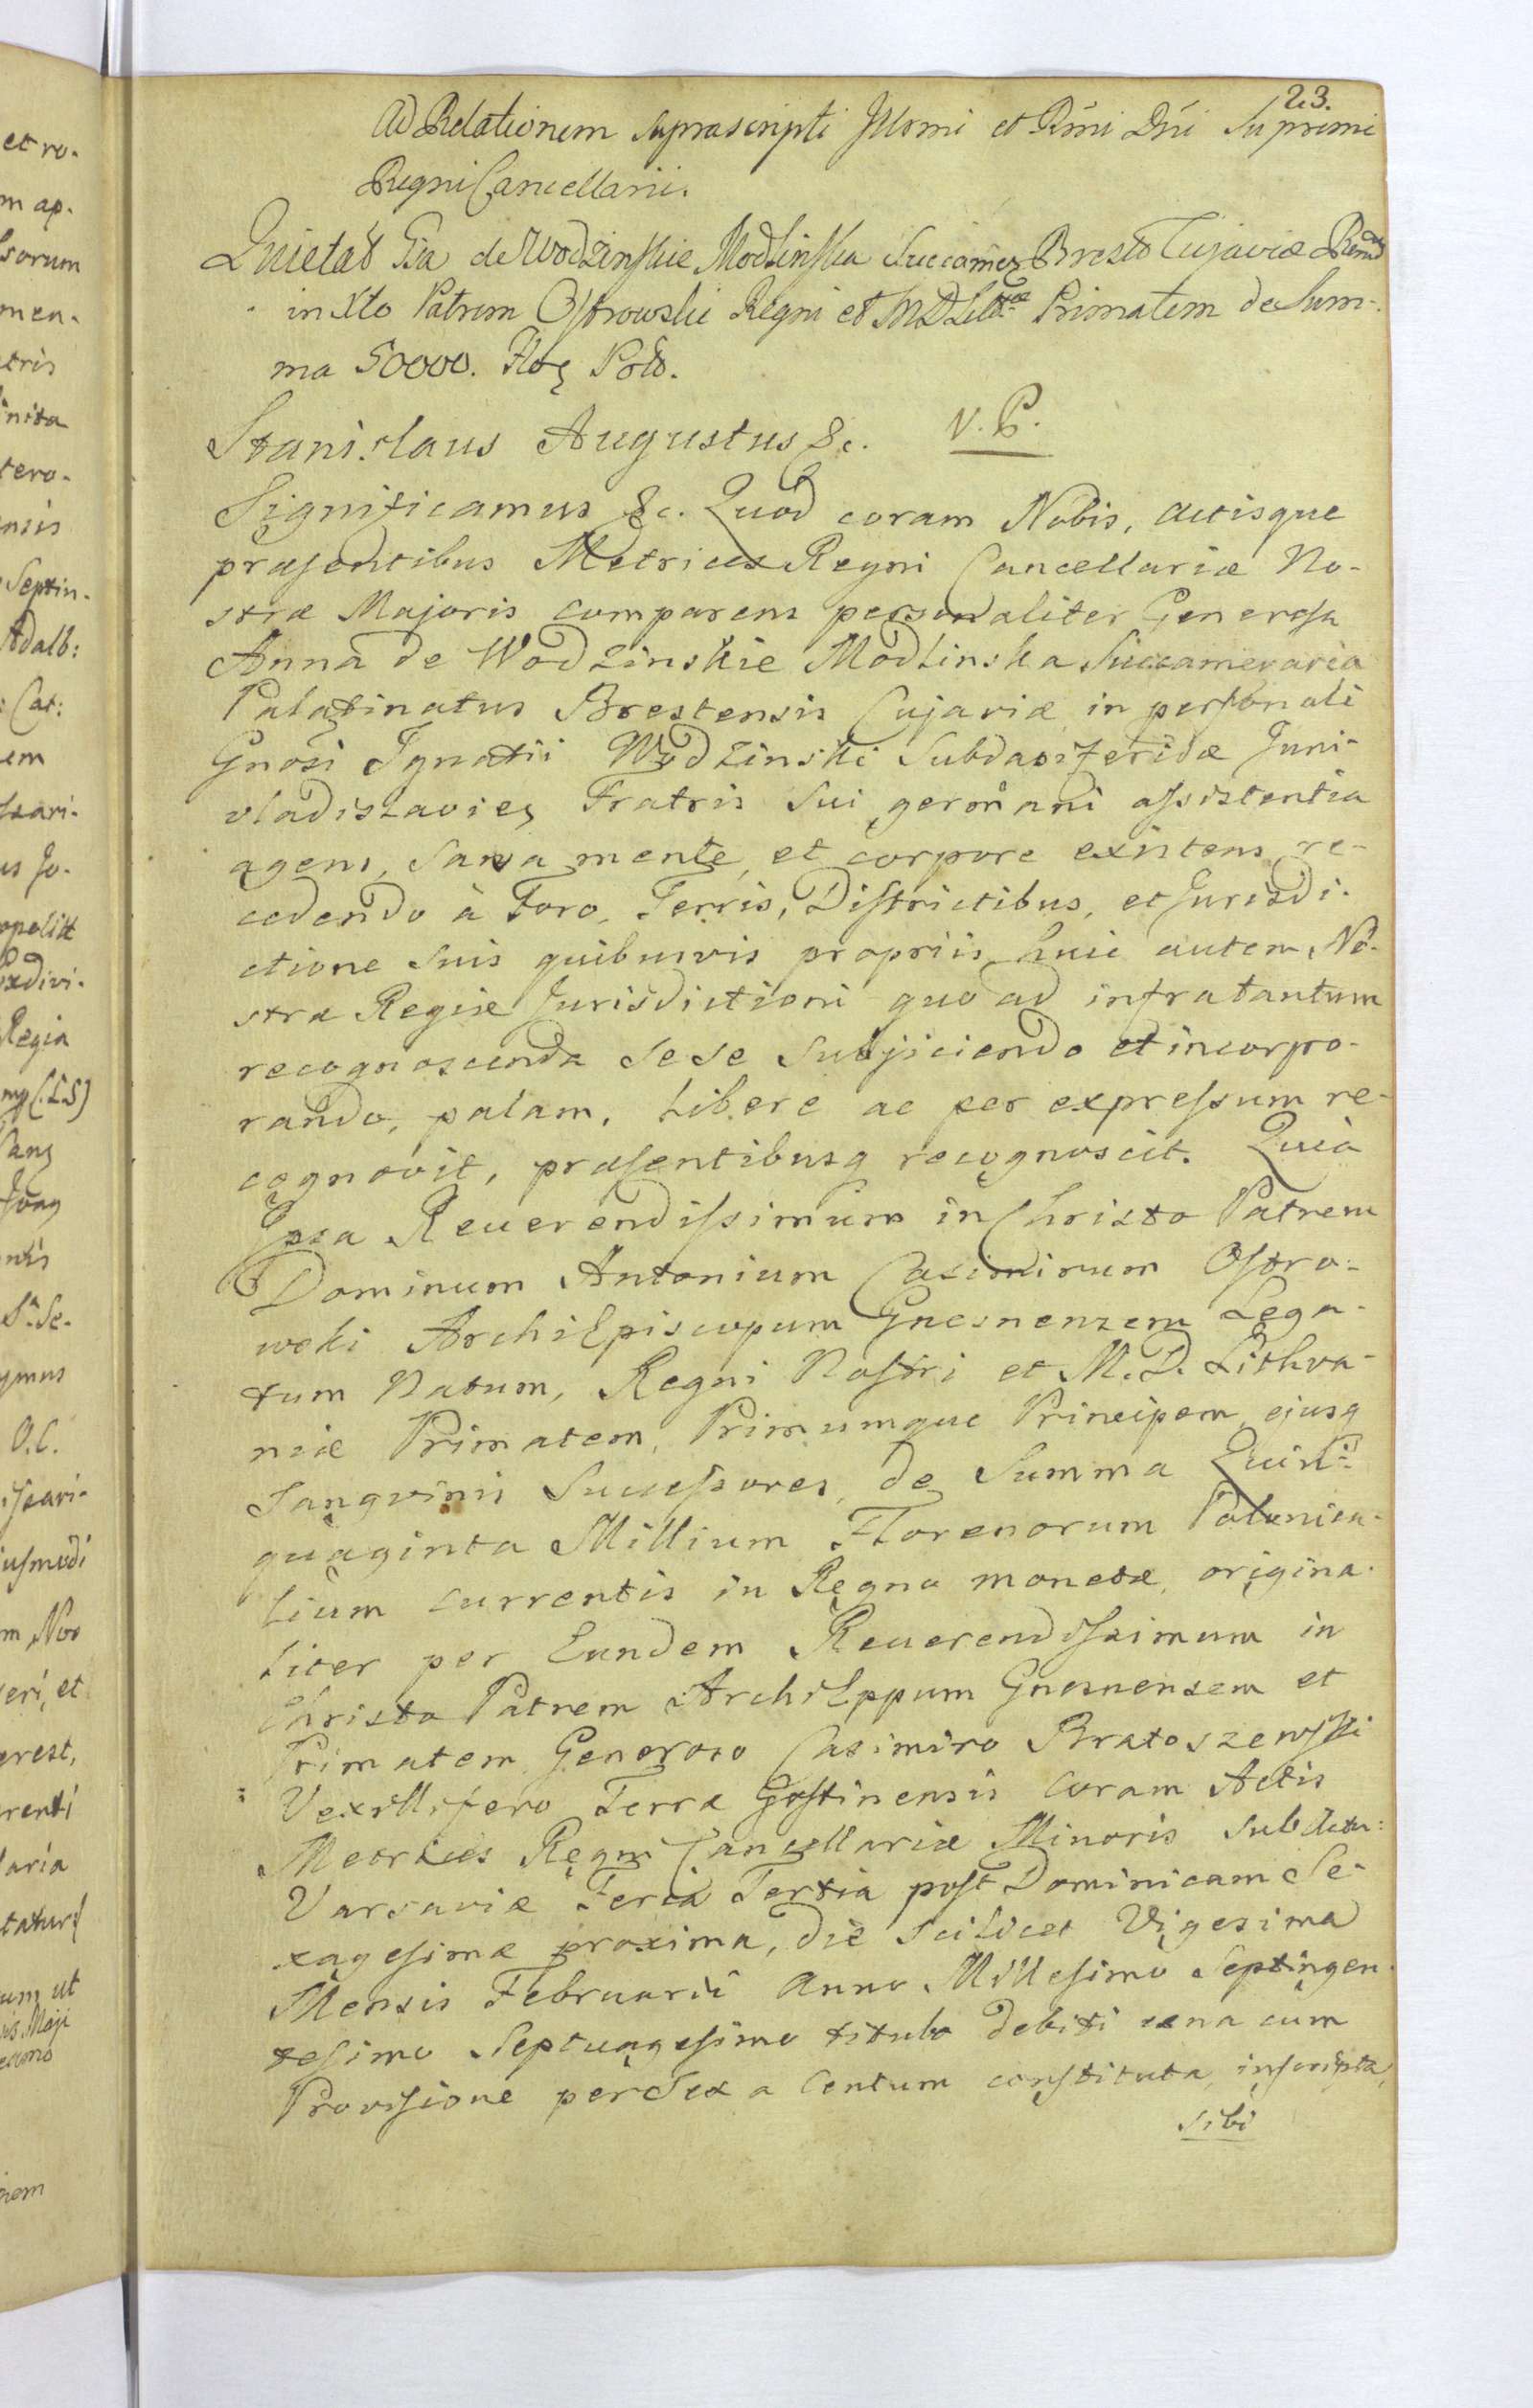 23.
Ad Relationem suprascripti Illsmi et Rmi Dni Supremi
Regni Cancellarii.
Quietat Gsa de Wodzinskie Modlinska Succamer Brest Cujaviæ Rend
in Xto Patrem Ostrowski Regni et M D Litt Primatem de Sum-
ma 50000. Flor Pol.
Stanislaus Augustus &c. V. C.
Significamus &c. Quod coram Nobis, actisque
præsentibus Metrices Regni Cancellariæ No-
stræ Majoris comparens personaliter Generosa
Anna de Wodzinskie Modlinska Succameraria
Palatinatus Brestensis Cujaviæ in personali
Gnosi Ignatii Wodzinski Subdapiferidæ Juni-
vladislavien Fratris sui germani assistentia
agens, sana mente, et corpore existens re-
cedendo à Foro, Terris, Districtibus, et Jurisdi-
ctione suis quibusvis propriis, huic autem No-
stræ Regiæ Jurisdictioni quo ad infratantum
recognoscenda sese subjiciendo et incorpo-
rando, palam, libere ac per expressum re-
cognovit, præsentibusq recognoscit. Quia
Ipsa Reuerendissimum in Christo Patrem
Dominum Antonium Casimirum Ostro-
wski ArchiEpiscopum Gnesnensem Lega-
tum Natum, Regni Nostri et M. D. Lithva-
niæ Primatem, Primumque Principem, ejusq
Sangvinis Successores, de Summa Quin-
quaginta Millium Florenorum Polonica-
lium currentis in Regno monetæ, origina-
liter per Eundem Reuerendissimum in
Christo Patrem ArchiEppum Gnesnensem et
Primatem Generoso Casimiro Bratoszewski
Vexillifero Terræ Gostinensis coram Actis
Metrices Regni Cancellariæ Minoris sub datu:
Varsaviæ Feria Tertia post Dominicam Se-
xagesimæ proxima, die scilicet Vigesima
Mensis Februarii Anno Millesimo Septingen-
tesimo Septuagesimo titulo debiti una cum
Provisione per Sex a Centum constituta, inscripta,
sibi